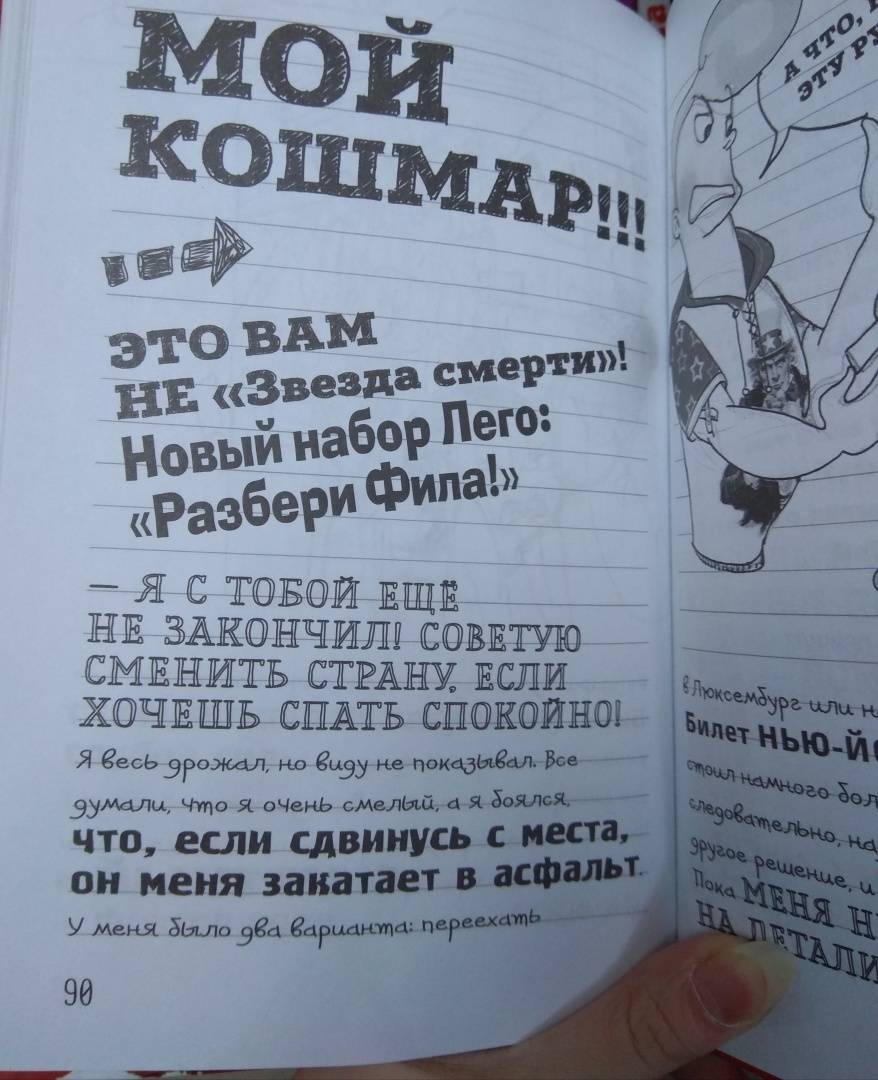 МОЙ
КОШМАР!!!
ЭТО ВАМ
НЕ «Звезда смерти»!
Новый набор Лего:
«Разбери Фила!»
— Я С ТОБОЙ ЕЩЁ
НЕ ЗАКОНЧИЛ! СОВЕТУЮ
СМЕНИТЬ СТРАНУ, ЕСЛИ
ХОЧЕШЬ СПАТЬ СПОКОЙНО!
Я весь дрожал, но виду не показывал. Все
думали, что я очень смелый, а я боялся,
что, если сдвинусь с места,
он меня закатает в асфальт.
У меня было два варианта: переехать
90
А ЧТО,
ЭТУ
в Люксембург или
Билет
стоил намного
следовательно,
другое решение, и
Пока МЕНЯ
НА ДЕТАЛИ